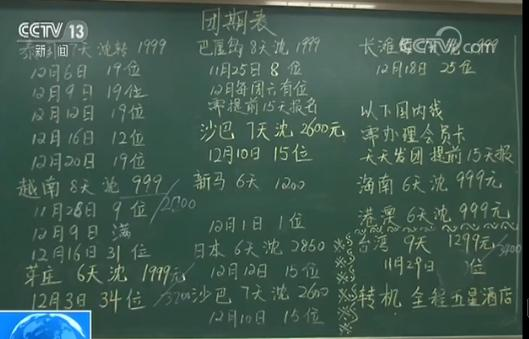 CCTV 13
新闻
CCTV.com
团期表
7天 沈转 1999
12月6日 19位
12月9日 19位
12月12日 19位
12月16日 12位
12月20日 19位
越南 8天 沈 999
2800
11月28日 9位
12月9日 满
12月16日 31位
芽庄 6天 沈 1999元
3200
12月3日 34位
巴厘岛 8天 沈 1999
11月25日 8位
12月每周六有位
需提前15天报名
沙巴 7天 沈 2600元
12月10日 15位
新马 6天 1200
12月1日 1位
日本 6天 沈 2850
12月12日 15位
沙巴 7天 沈 2600
12月10日 15位
长滩
12月18日 25位
以下国内线
需办理会员卡
天天发团 提前15天报
海南 6天 沈 999元
港澳 6天 沈 999元
台湾 9天 1299元
3400
11月29日 位
转机 全程五星酒店